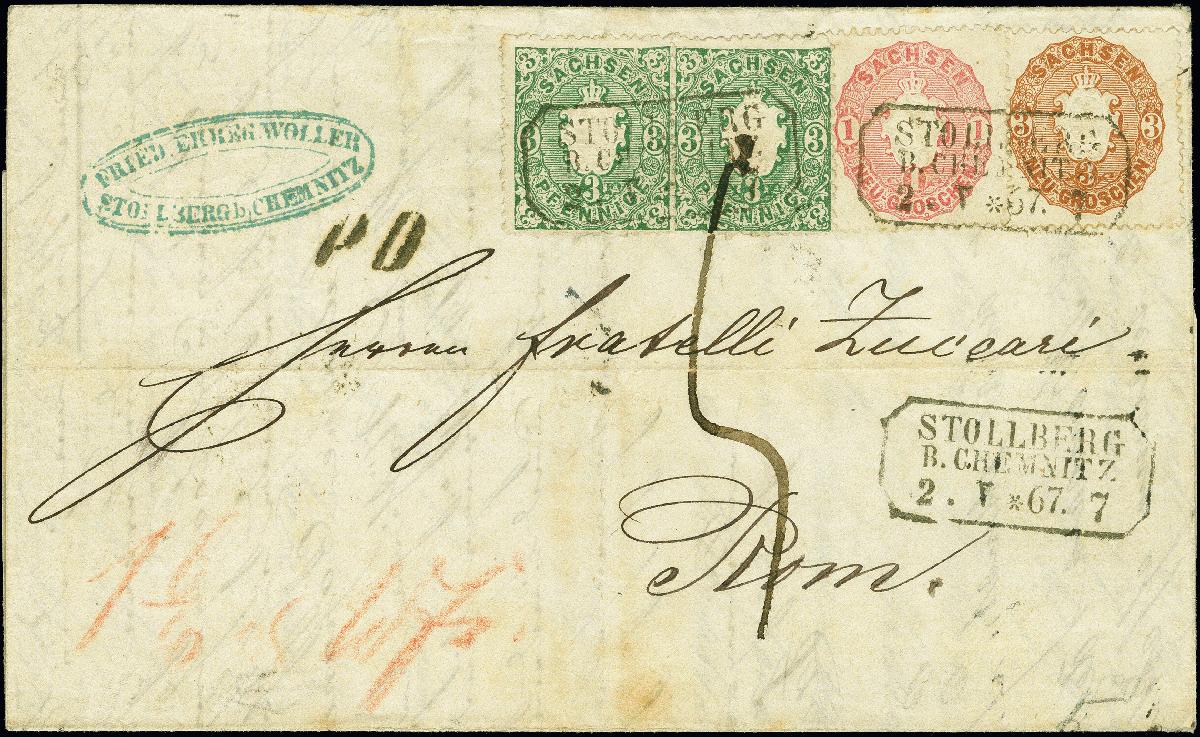 FRIED. EHREG. WOLLER
STOLLBERG B. CHEMNITZ
PD
3 SACHSEN 3
3 3
3
3 PFENNIGE 3
3 SACHSEN 3
3 3
3
3 PFENNIGE 3
SACHSEN
1
NEU-GROSCHEN
SACHSEN
3 3
3
NEU-GROSCHEN
STOLLBERG
B. CHEMNITZ
STOLLBERG
B. CHEMNITZ
2. V *67. 7
Herren fratelli Zuccari
Rom.
STOLLBERG
B. CHEMNITZ
2. V *67. 7